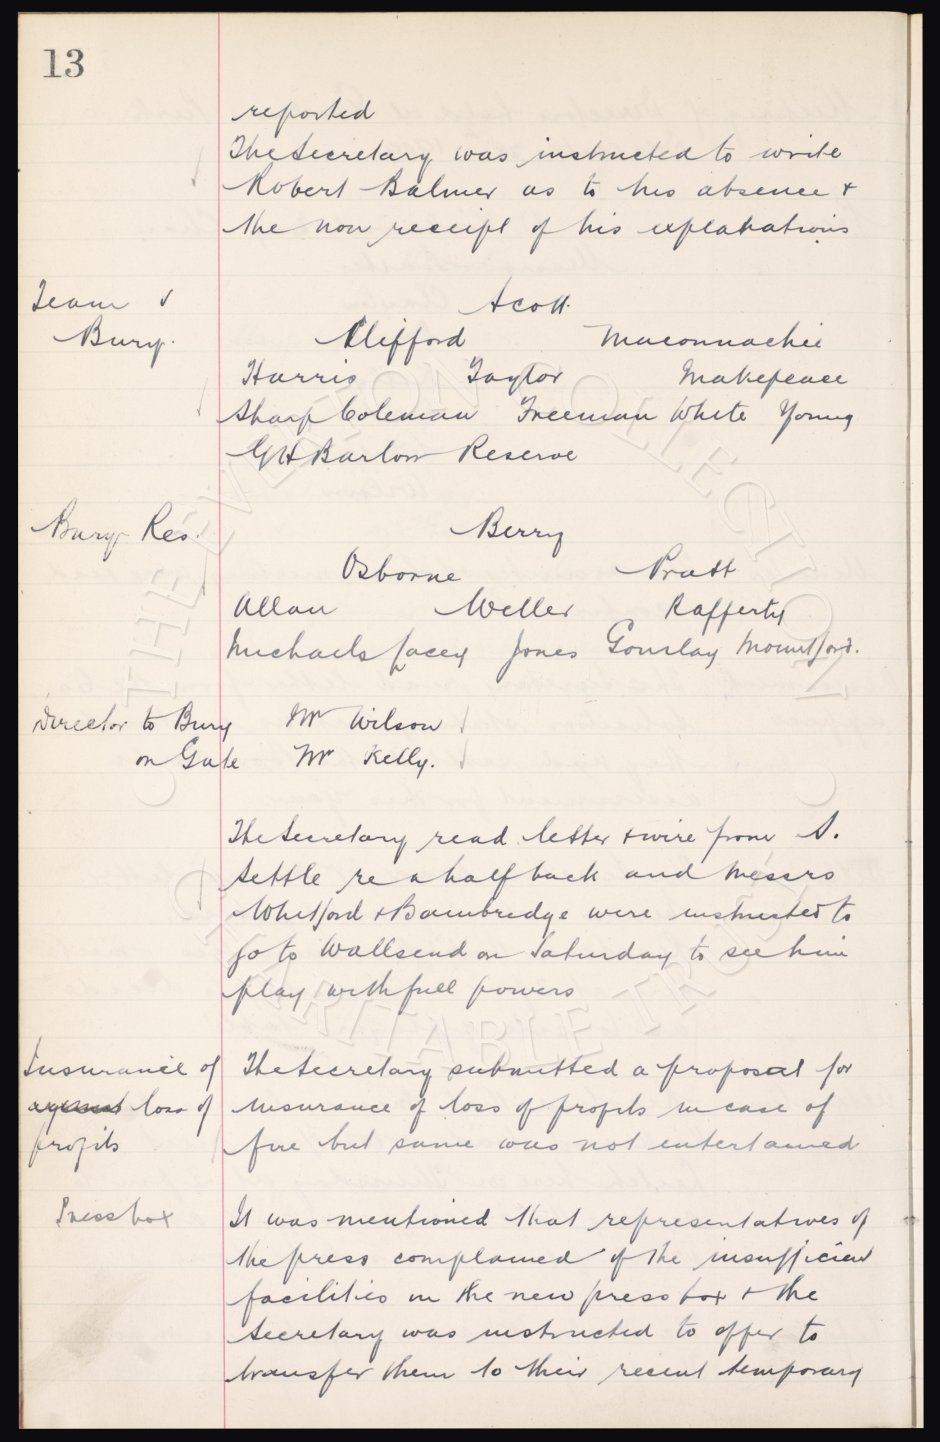 13
reported
The Secretary was instructed to write
Robert Balmer as to his absence &
the non receipt of his explanations
Team v
Bury.
Scott
Clifford Maconnachie
Harris Taylor Makepeace
Sharp Coleman Freeman White Young
G H Barlow Reserve
Bury Res.
Berry
Osborne Pratt
Allan Weller Rafferty
Michaels Lacey Jones Gourlay Mountford.
Director to Bury Mr Wilson
on Gate Mr Kelly.
The Secretary read letter & wire from A.
Settle re a half back and Messrs
Whitford & Bainbridge were instructed to
go to Wallsend on Saturday to see him
play with full powers
Insurance of
against loss of
profits
The Secretary submitted a proposal for
insurance of loss of profits in case of
fire but same was not entertained
Press box
It was mentioned that representatives of
the press complained of the insufficient
facilities in the new press box & the
Secretary was instructed to offer to
transfer them to their recent temporary
THE EVERTON COLLECTION
CHARITABLE TRUST